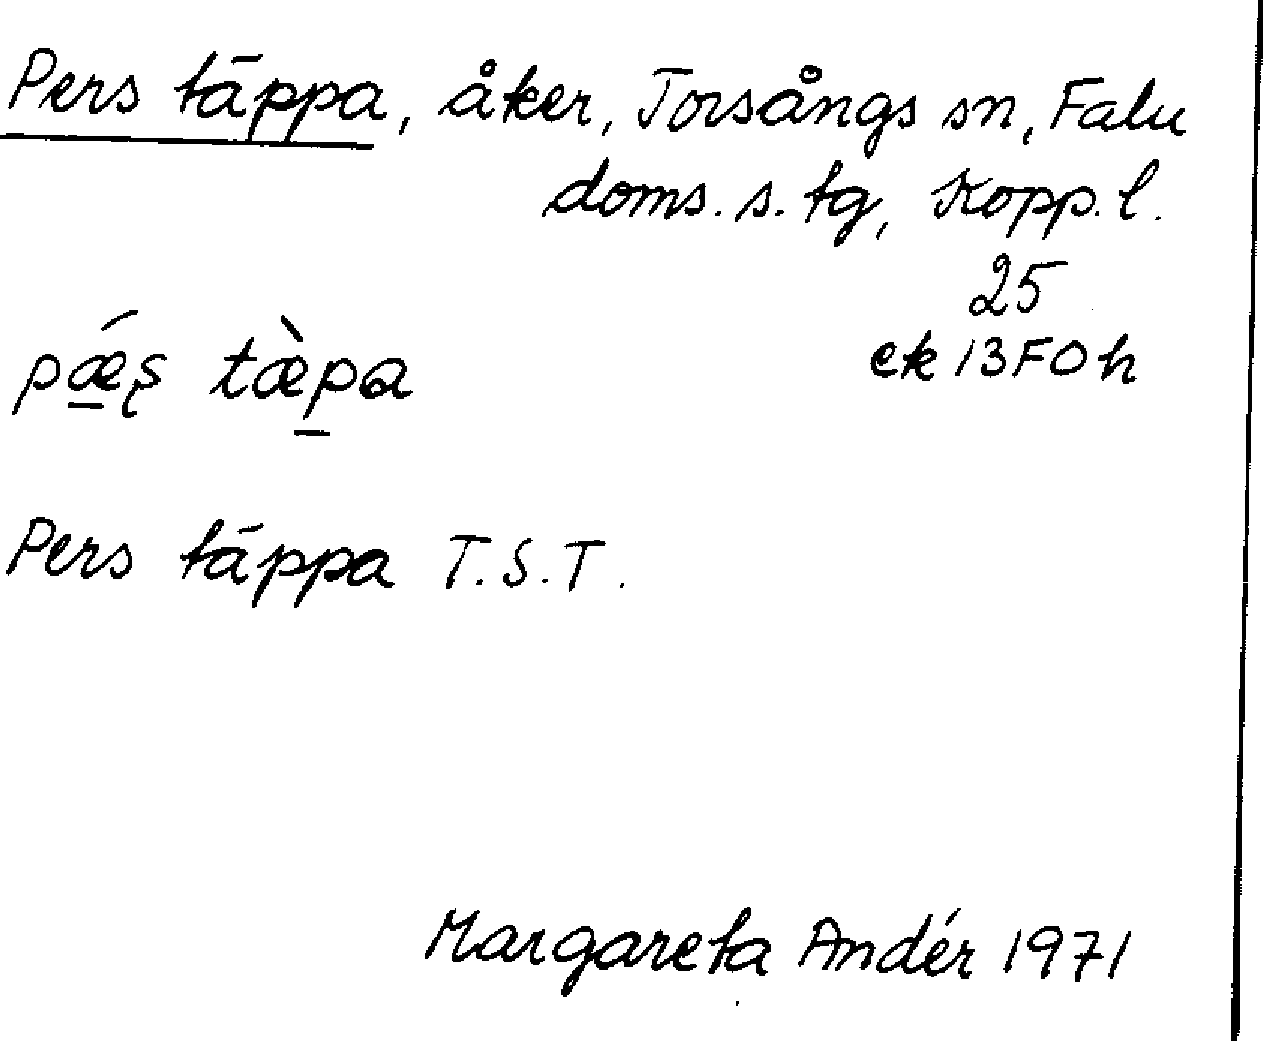 Pers täppa, åker, Torsångs sn, Falu
doms. s. tg, Kopp. l.
25
ek 13F0h
pǽ̱ʂ tæ̀p̱a
Pers täppa T.S.T.
Margareta Andér 1971